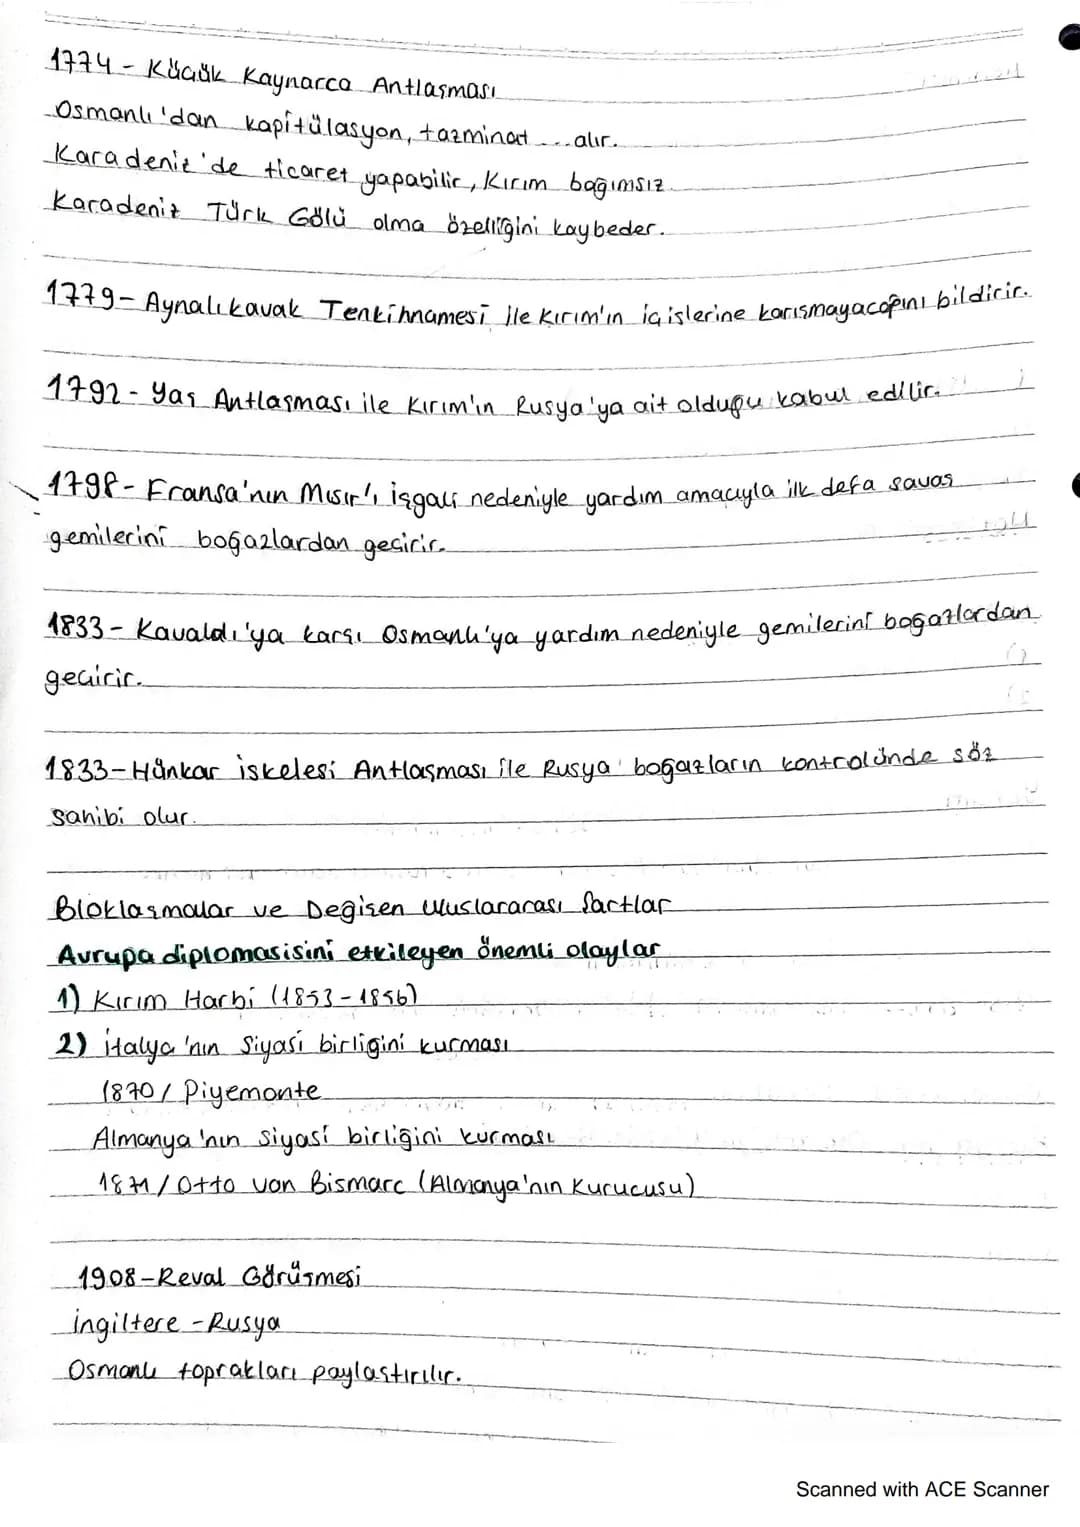 1774 - Küçük Kaynarca Antlaşması
Osmanlı'dan kapitülasyon, tazminat ... alır.
Karadeniz'de ticaret yapabilir, Kırım bağımsız.
Karadeniz Türk Gölü olma özelliğini kaybeder.
1779 - Aynalıkavak Tenkihnamesi ile Kırım'ın iç işlerine karışmayacağını bildirir.
1792 - Yaş Antlaşması ile Kırım'ın Rusya'ya ait olduğu kabul edilir.
1798 - Fransa'nın Mısır'ı işgali nedeniyle yardım amacıyla ilk defa savaş
gemilerini boğazlardan geçirir.
1833 - Kavalalı'ya karşı Osmanlı'ya yardım nedeniyle gemilerini boğazlardan
geçirir.
1833 - Hünkar iskelesi Antlaşması ile Rusya boğazların kontrolünde söz
sahibi olur.
Bloklaşmalar ve Değişen Uluslararası Şartlar
Avrupa diplomasisini etkileyen önemli olaylar
1) Kırım Harbi (1853-1856)
2) İtalya'nın Siyasi birliğini kurması
1870 / Piyemonte
Almanya'nın siyasi birliğini kurması
1871 / Otto von Bismarc (Almanya'nın Kurucusu)
1908 - Reval Görüşmesi
İngiltere - Rusya
Osmanlı toprakları paylaştırılır.
Scanned with ACE Scanner